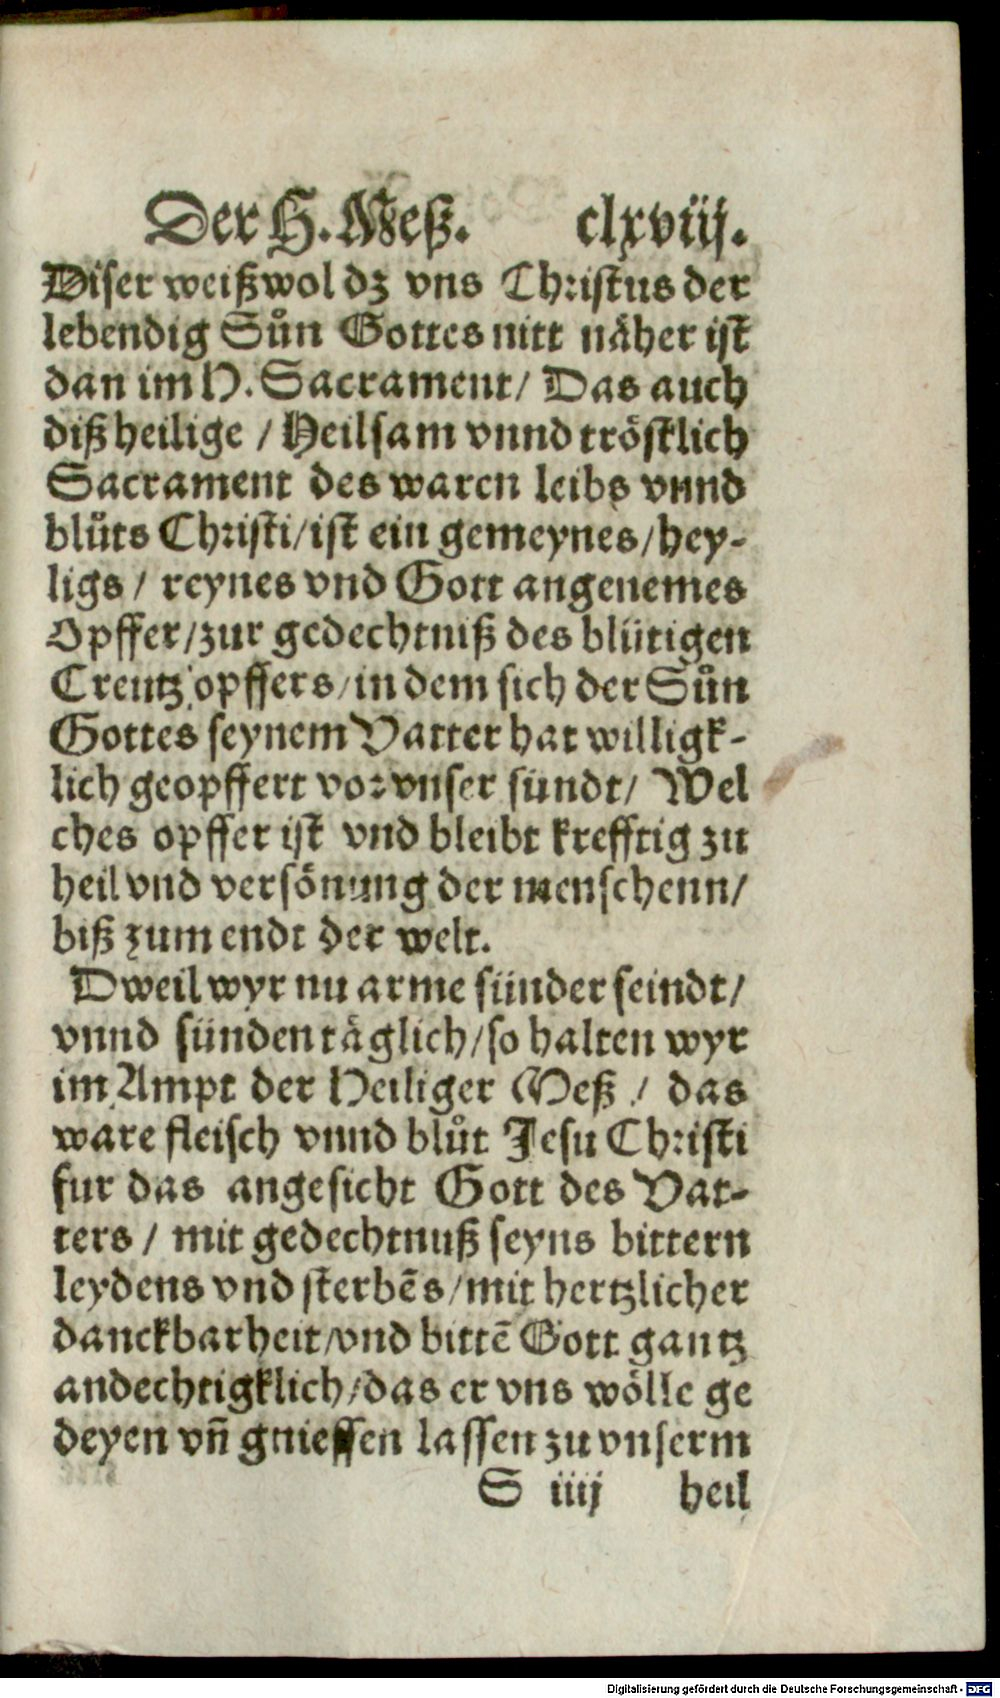 Der H. Meß. clxviij.
Diser weißwol dz vns Christus der
lebendig Sůn Gottes nitt näher ist
dan im H. Sacrament/ Das auch
diß heilige / Heilsam vnnd tröstlich
Sacrament des waren leibs vnnd
blůts Christi/ist ein gemeynes/hey-
ligs / reynes vnd Gott angenemes
Opffer/zur gedechtniß des blütigen
Creutz opffers/in dem sich der Sůn
Gottes seynem Vatter hat willigk-
lich geopffert vor vnser sündt/ Wel
ches opffer ist vnd bleibt krefftig zu
heil vnd versönung der menschenn/
biß zum endt der welt.
Dweil wyr nu arme sünder seindt/
vnnd sünden täglich/so halten wyr
im Ampt der Heiliger Meß / das
ware fleisch vnnd blůt Jesu Christi
fur das angesicht Gott des Vat-
ters / mit gedechtnuß seyns bittern
leydens vnd sterbēs/mit hertzlicher
danckbarheit/vnd bittē Gott gantz
andechtigklich/das er vns wölle ge
deyen vñ gniessen lassen zu vnserm
S iiij heil
Digitalisierung gefördert durch die Deutsche Forschungsgemeinschaft - DFG